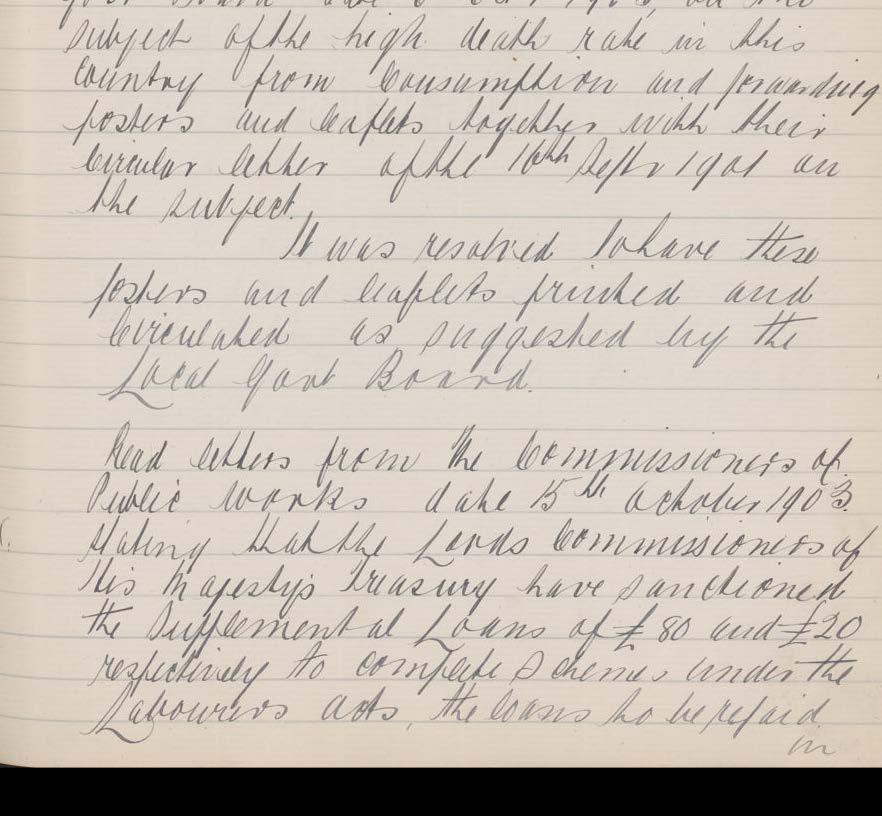 subject of the high death rate in this
Country from Consumption and forwarding
posters and leaflets together with their
Circular letter of the 16th Septr 1901 on
the subject.
It was resolved to have these
posters and leaflets printed and
Circulated as suggested by the
Local Govt Board.
Read letters from the Commissioners of
Public Works date 15th October 1903.
stating that the Lords Commissioners of
His Majesty's Treasury have sanctioned
the Supplemental Loans of £80 and £20
respectively to complete Schemes under the
Labourers acts, the loans to be repaid
in